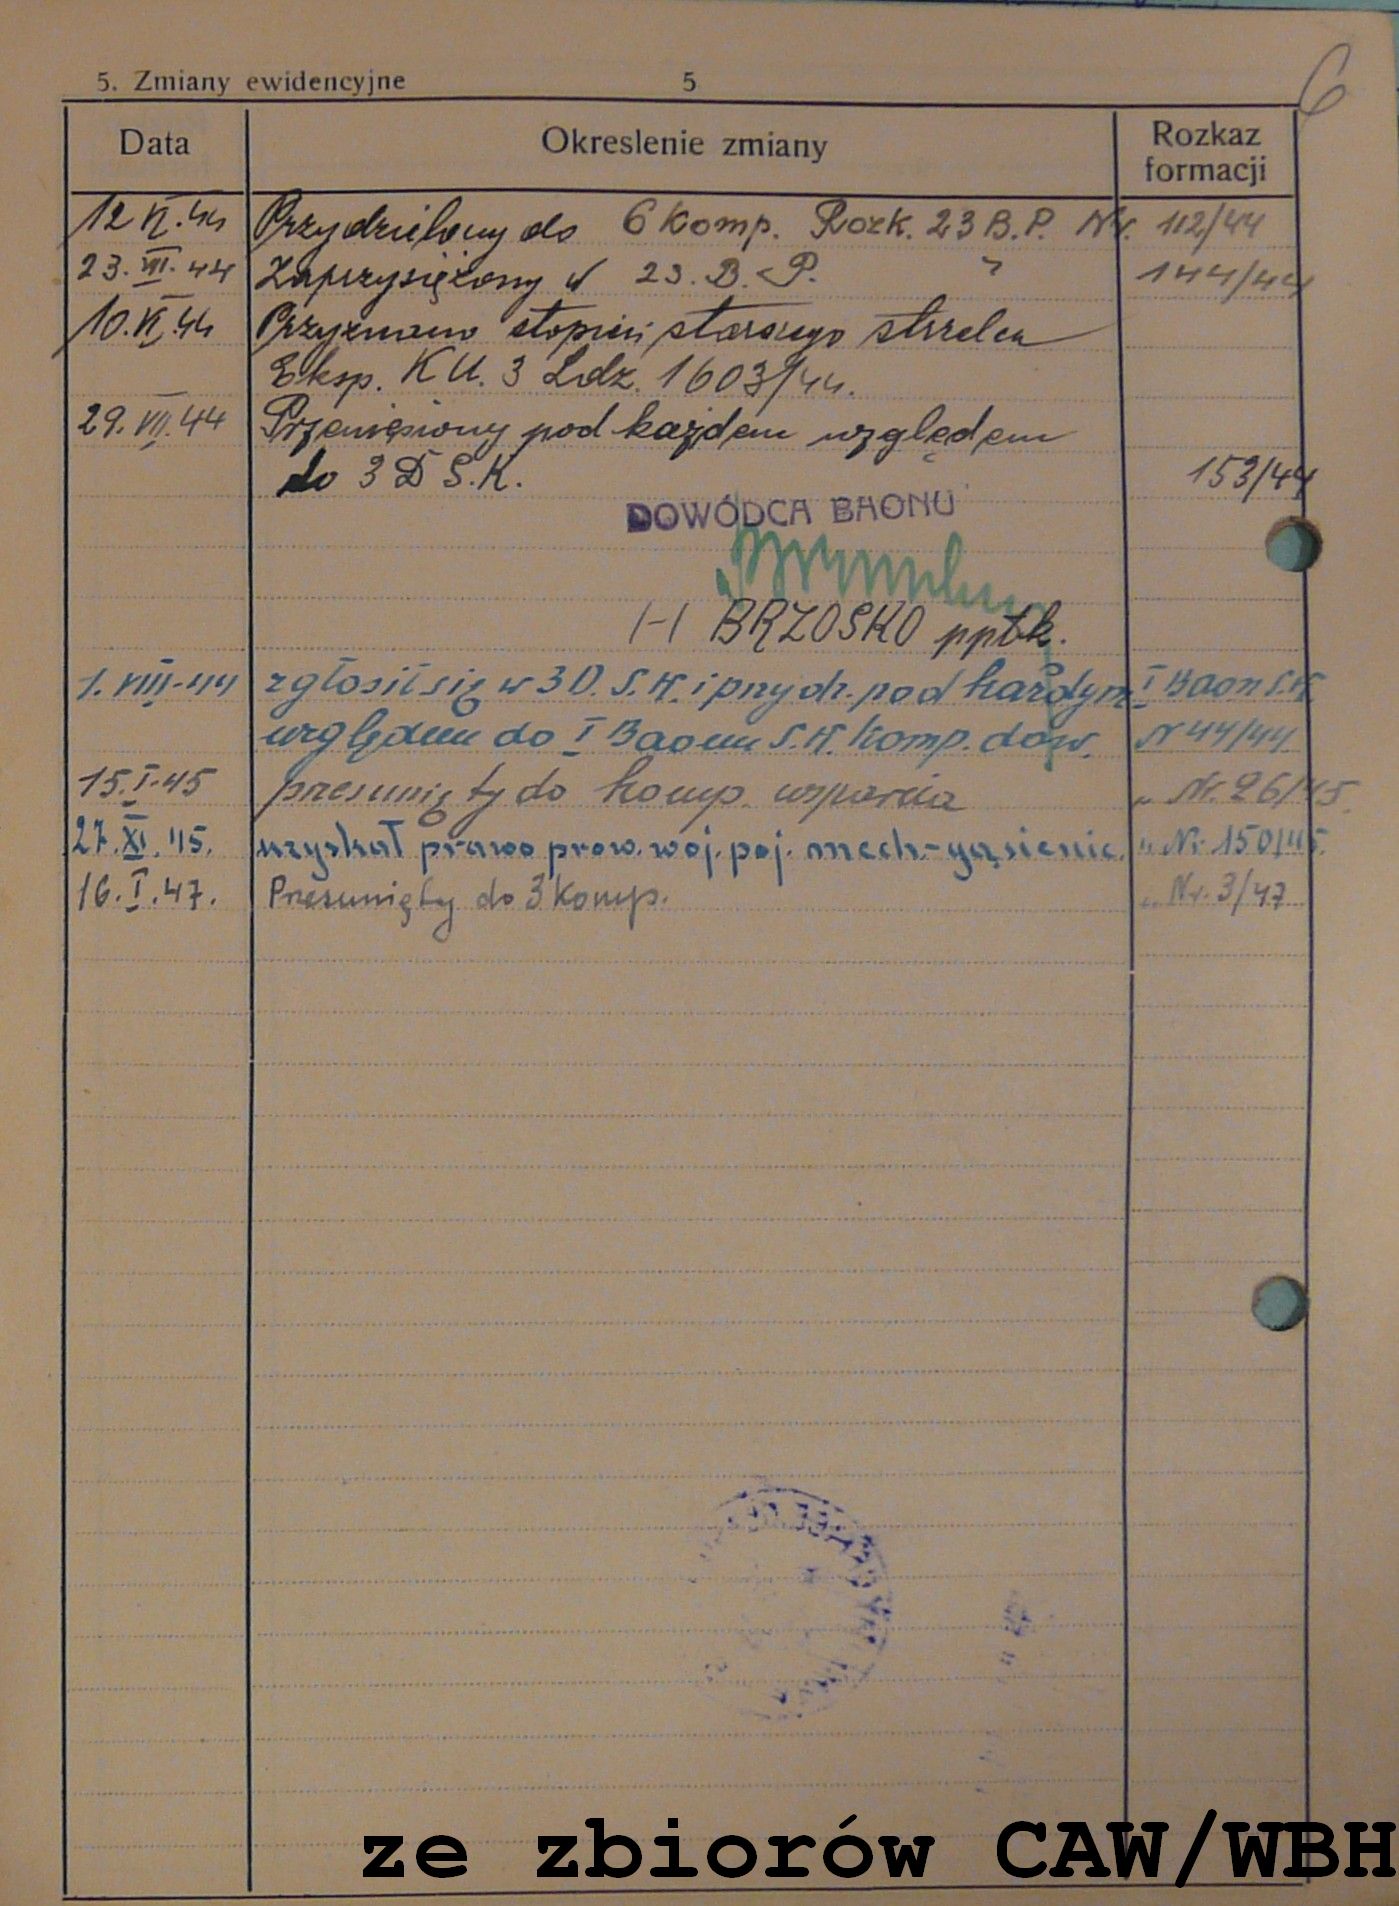 5. Zmiany ewidencyjne 5 6
Data Okreslenie zmiany Rozkaz formacji
12 VI.44 Przydzielony do 6 Komp. Rozk. 23 B.P. Nr. 112/44
23. VII. 44 Zaprzysiężony w 23. B. P. " 144/44
10. VI. 44 Przyznano stopień starszego strzelca
Eksp. KU. 3 Ldz. 1603/44.
29. VII. 44 Przeniesiony pod każdem względem
do 3 D S.K. 153/44
DOWÓDCA BAONU
/-/ BRZOSKO ppłk.
1. VIII-44 zgłosił się w 3 D. S. K. i przydz. pod każdym I Baon S.K.
względem do I Baonu S. K. Komp. dow. N 44/44
15. I-45 przesunięty do komp. wsparcia " Nr. 26/45.
27. XI. 45. uzyskał prawo prow. woj. poj. mech.-gąsienic. " Nr 150/45.
16. I. 47. Przesunięty do 3 Komp. " Nr. 3/47
ze zbiorów CAW/WBH